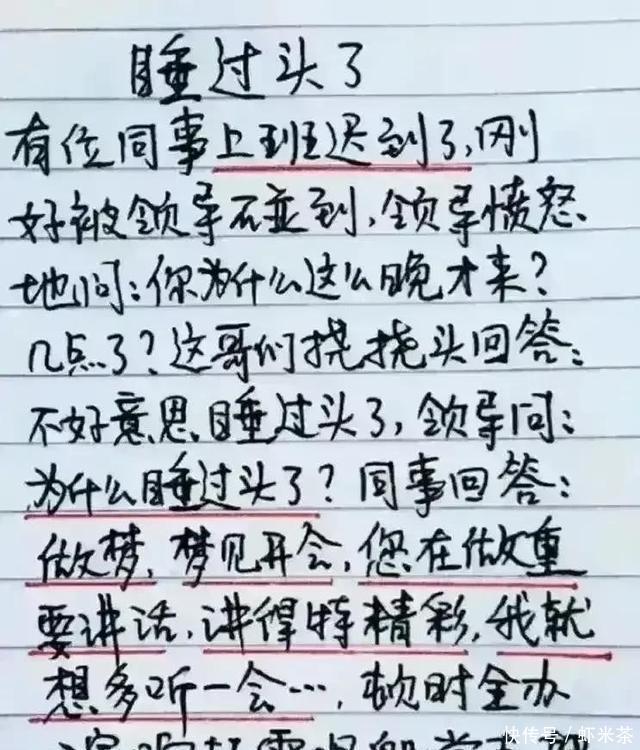 睡过头了
有位同事上班迟到了,刚
好被领导碰到,领导愤怒
地问:你为什么这么晚才来?
几点了?这哥们挠挠头回答:
不好意思睡过头了,领导问:
为什么睡过头了?同事回答:
做梦,梦见开会,您在做重
要讲话,讲得特精彩,我就
想多听一会…,顿时全办
快传号/虾米茶